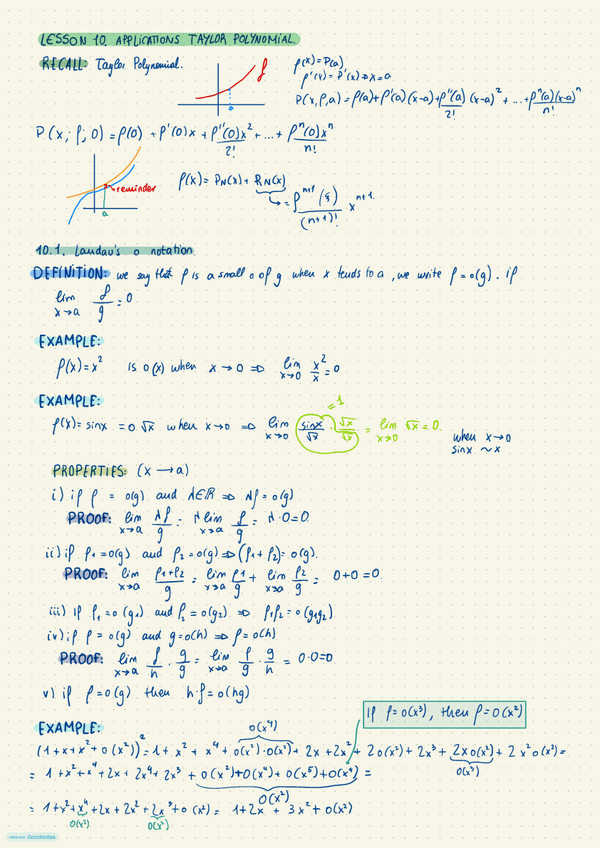 LESSON 10. APPLICATIONS TAYLOR POLYNOMIAL.
RECALL: Taylor Polynomial.
f
a
f(x) = P(a)
f'(x) = P'(x) ⇒ x = a
P(x, f, a) = f(a) + f'(a)(x-a) + f''(a)/2! (x-a)² + ... + fⁿ(a)(x-a)ⁿ/n!
P(x; f; 0) = f(0) + f'(0)x + f''(0)x²/2! + ... + fⁿ(0)xⁿ/n!
reminder
a
f(x) = PN(x) + RN(x)
↳ = fⁿ⁺¹(ξ)/(n+1)! xⁿ⁺¹
10.1. Landau's o notation.
DEFINITION: we say that f is a small o of g when x tends to a, we write f = o(g). if
lim x→a f/g = 0
EXAMPLE:
f(x) = x² is o(x) when x → 0 ⇒ lim x→0 x²/x = 0
EXAMPLE:
= 1
f(x) = sinx = o √x when x → 0 ⇒ lim x→0 sinx/√x · √x/√x = lim x→0 √x = 0.
when x → 0
sinx ~ x
PROPERTIES: (x → a)
i) if f = o(g) and λ∈ℝ ⇒ λf = o(g)
PROOF: lim x→a λf/g = λ lim x→a f/g = λ·0 = 0.
ii) if f₁ = o(g) and f₂ = o(g) ⇒ (f₁+f₂) = o(g).
PROOF: lim x→a f₁+f₂/g = lim x→a f₁/g + lim x→a f₂/g = 0+0 = 0.
iii) If f₁ = o(g₁) and f₂ = o(g₂) ⇒ f₁f₂ = o(g₁g₂)
iv) if f = o(g) and g = o(h) ⇒ f = o(h)
PROOF: lim x→a f/h · g/g = lim x→a f/g · g/h = 0·0=0
v) if f = o(g) then h·f = o(hg)
If f = o(x³), then f = o(x²)
EXAMPLE:
o(x⁴)
(1+x+x²+o(x²))² = 1+x²+x⁴+o(x²)·o(x²)+2x+2x²+2o(x²)+2x³+2xo(x²)+2x²o(x²) =
o(x³)
= 1+x²+x⁴+2x+2x⁴+2x³+o(x²)+o(x⁴)+o(x⁵)+o(x⁴) =
o(x²)
= 1+x²+x⁴+2x+2x²+2x³+o(x²) = 1+2x+3x²+o(x²)
o(x²) o(x²)
Made with Goodnotes